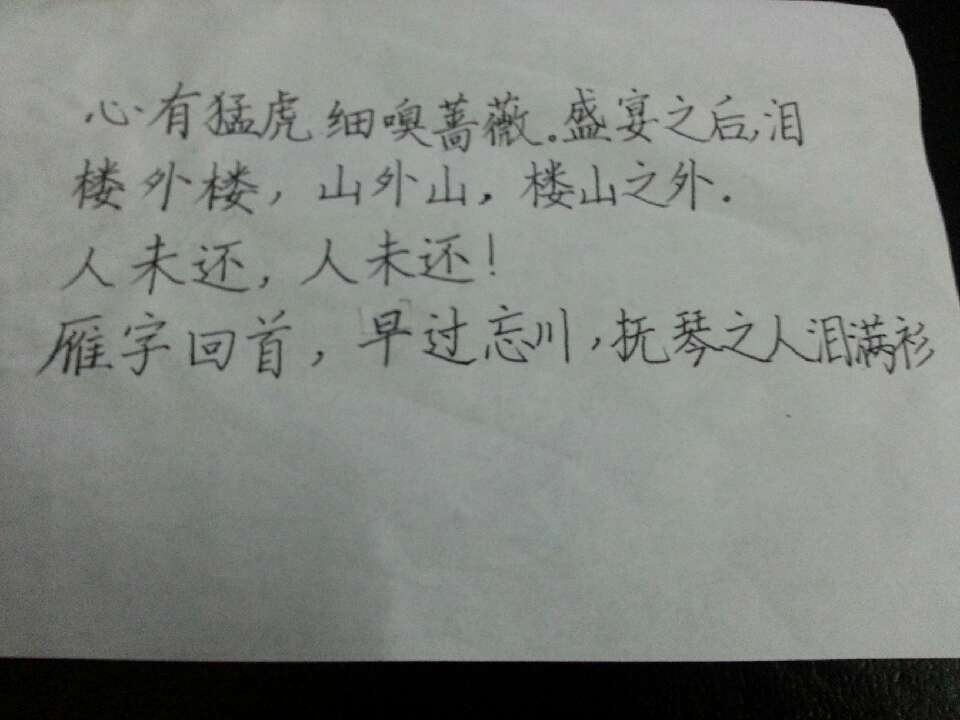 心有猛虎 细嗅蔷薇。盛宴之后,泪
楼外楼，山外山，楼山之外.
人未还，人未还！
雁字回首，早过忘川，抚琴之人泪满衫